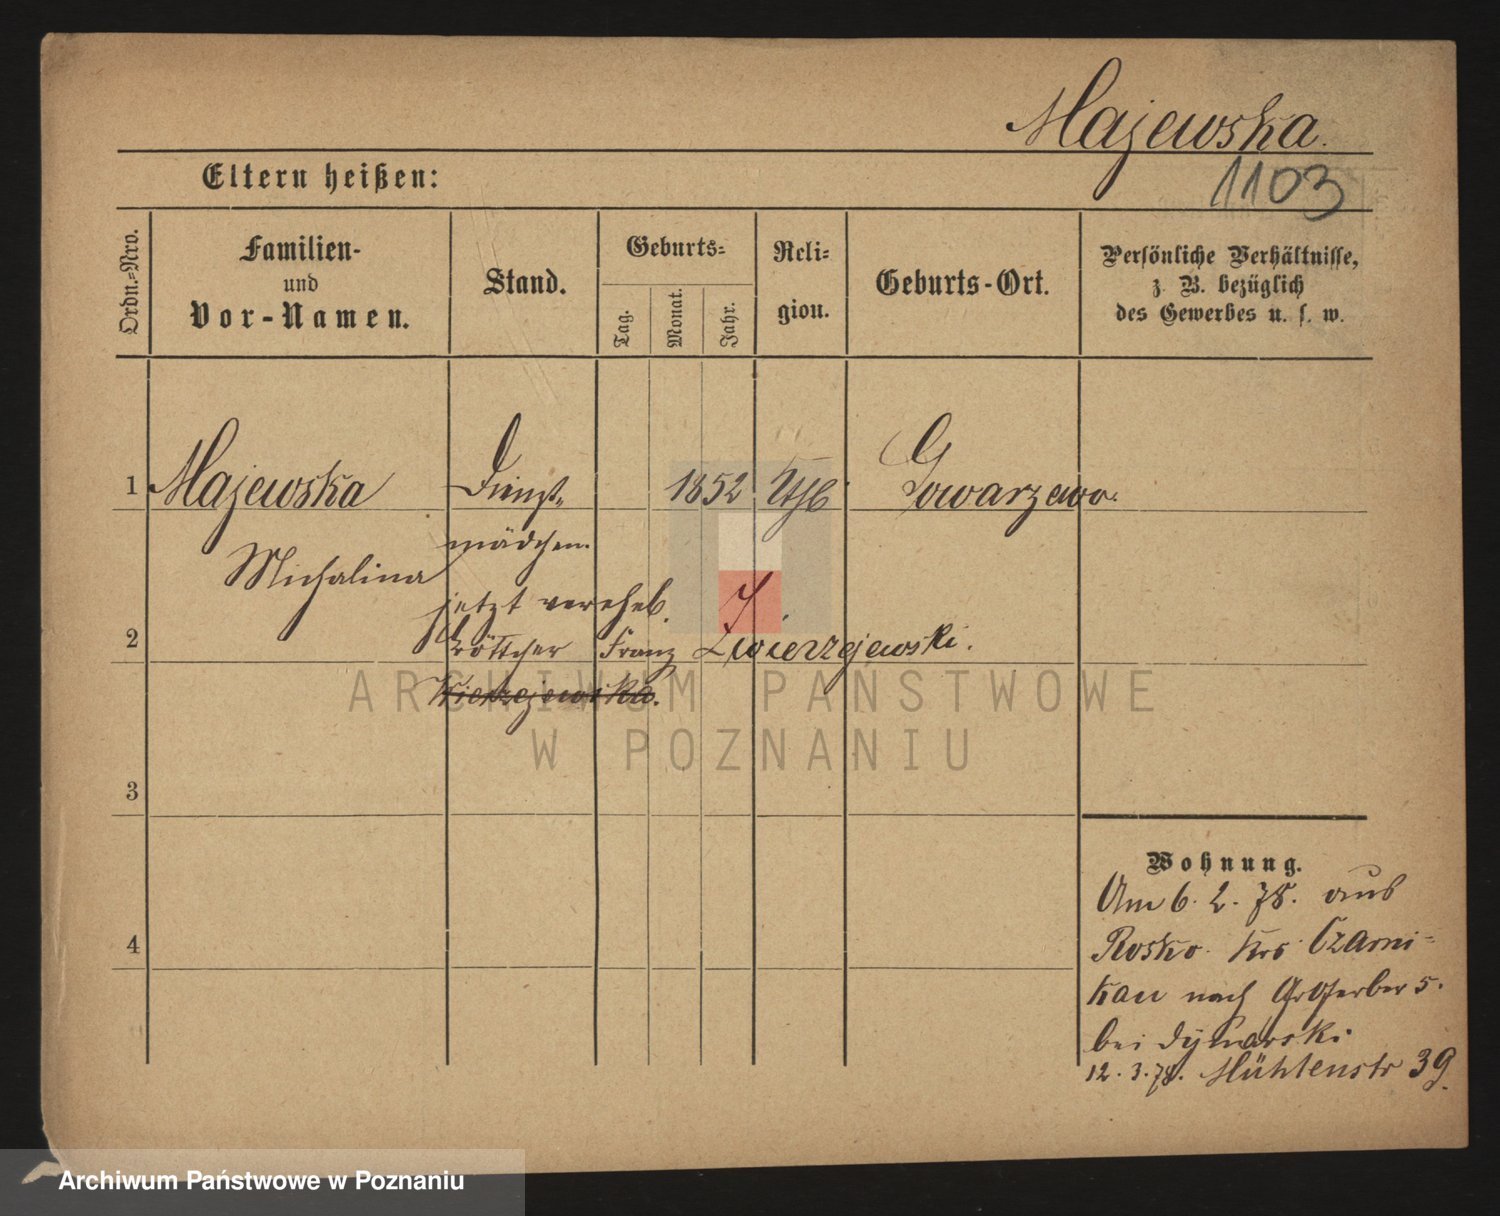 Majewska.
1103
Eltern heißen:
Ordn.=Nro.
Familien-
und
Vor-Namen.
Stand.
Geburts=
Tag.
Monat.
Jahr.
Reli=
gion.
Geburts-Ort.
Persönliche Verhältnisse,
z. B. bezüglich
des Gewerbes u. s. w.
1 Majewska Dienst= 1852 Kth G
Gowarzewo.
Michalina mädchen.
jetzt verehel.
2 Böttcher Franz Zwierzejewski.
Wierzejewska.
3
4
Wohnung.
Am 6. 2. 78. aus
Rosko Krs Czarni=
kau nach Grgerber 5.
bei Dynarski
12. 3. 78. Mühlenstr 39.
ARCHIWUM PAŃSTWOWE
W POZNANIU
Archiwum Państwowe w Poznaniu